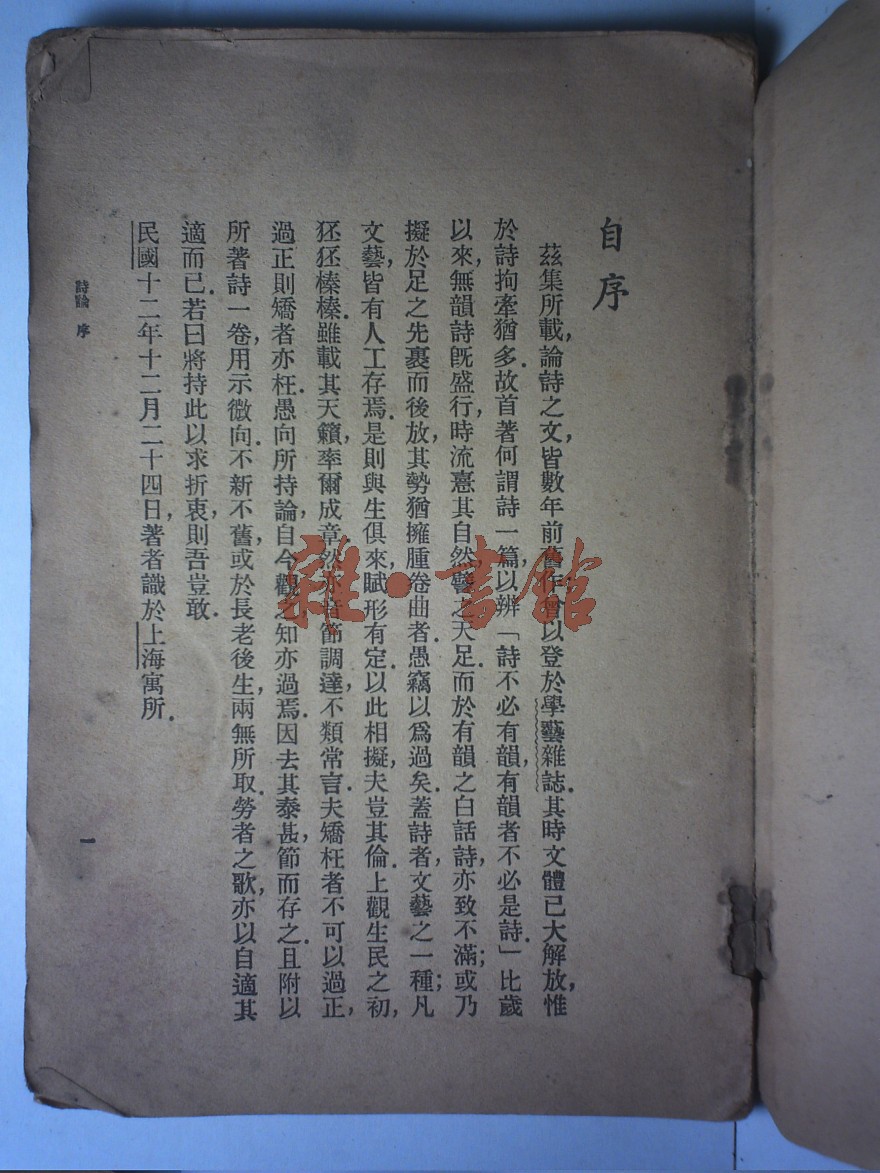 自序
茲集所載,論詩之文,皆數年前舊作,曾以登於學藝雜誌.其時文體已大解放,惟
於詩拘牽猶多.故首著何謂詩一篇,以辨「詩不必有韻,有韻者不必是詩.」比歲
以來,無韻詩既盛行,時流憙其自然,譬之天足.而於有韻之白話詩,亦致不滿;或乃
擬於足之先裹而後放,其勢猶擁腫卷曲者.愚竊以為過矣.蓋詩者,文藝之一種;凡
文藝,皆有人工存焉.是則與生俱來,賦形有定.以此相擬,夫豈其倫.上觀生民之初,
狉狉榛榛.雖載其天籟,率爾成章.然亦音節調達,不類常言.夫矯枉者不可以過正,
過正則矯者亦枉.愚向所持論,自今觀之,知亦過焉.因去其泰甚,節而存之.且附以
所著詩一卷,用示微向.不新不舊,或於長老後生,兩無所取.勞者之歌,亦以自適其
適而已.若曰將持此以求折衷,則吾豈敢.
民國十二年十二月二十四日,著者識於上海寓所.
詩論 序
一
雜·書館